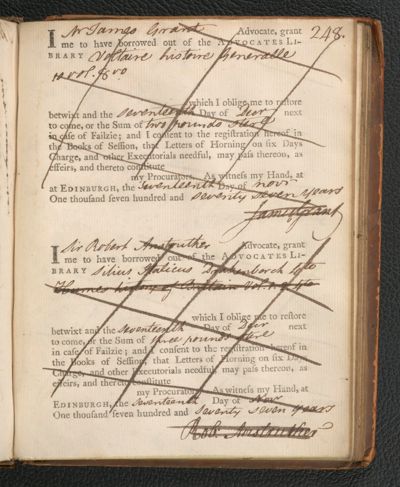 248.
I Mr James Grant Advocate, grant
me to have borrowed out of the ADVOCATES LI-
BRARY Voltaire histoire Generalle
10 vol. 8vo
which I oblige me to reſtore
betwixt and the seventeenth Day of Decr next
to come, or the Sum of two pounds sterg
in caſe of Failzie; and I conſent to the regiſtration hereof in
the Books of Seſſion, that Letters of Horning on ſix Days
Charge, and other Executorials needful, may paſs thereon, as
effeirs, and thereto conſtitute
my Procurators. As witneſs my Hand, at
at EDINBURGH, the Seventeenth Day of novr
One thouſand ſeven hundred and seventy seven years
James Grant
I Sir Robert Anstruther Advocate, grant
me to have borrowed out of the ADVOCATES LI-
BRARY Silius Italicus Drakenborch 4to
Humes history of Brittain Vol. 4to
which I oblige me to reſtore
betwixt and the seventeenth Day of Decr next
to come, or the Sum of three pounds
in caſe of Failzie; and I conſent to the regiſtration hereof in
the Books of Seſſion, that Letters of Horning on ſix Days
Charge, and other Executorials needful, may paſs thereon, as
effeirs, and thereto conſtitute
my Procurators. As witneſs my Hand, at
EDINBURGH, the Seventeenth Day of Novr
One thouſand ſeven hundred and seventy seven years
Rob: Anstruther